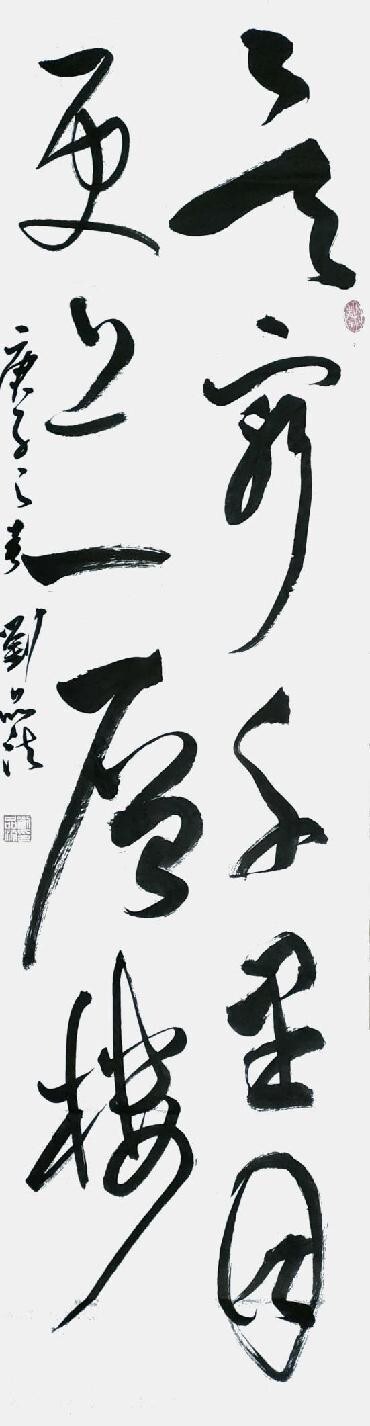 欲窮千里目
更上一層樓
庚子之春 劉品法